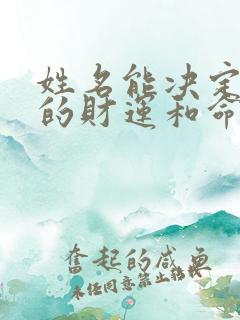 姓名能决定
的财运和命
奋起的咸鱼
未经同意禁止转载